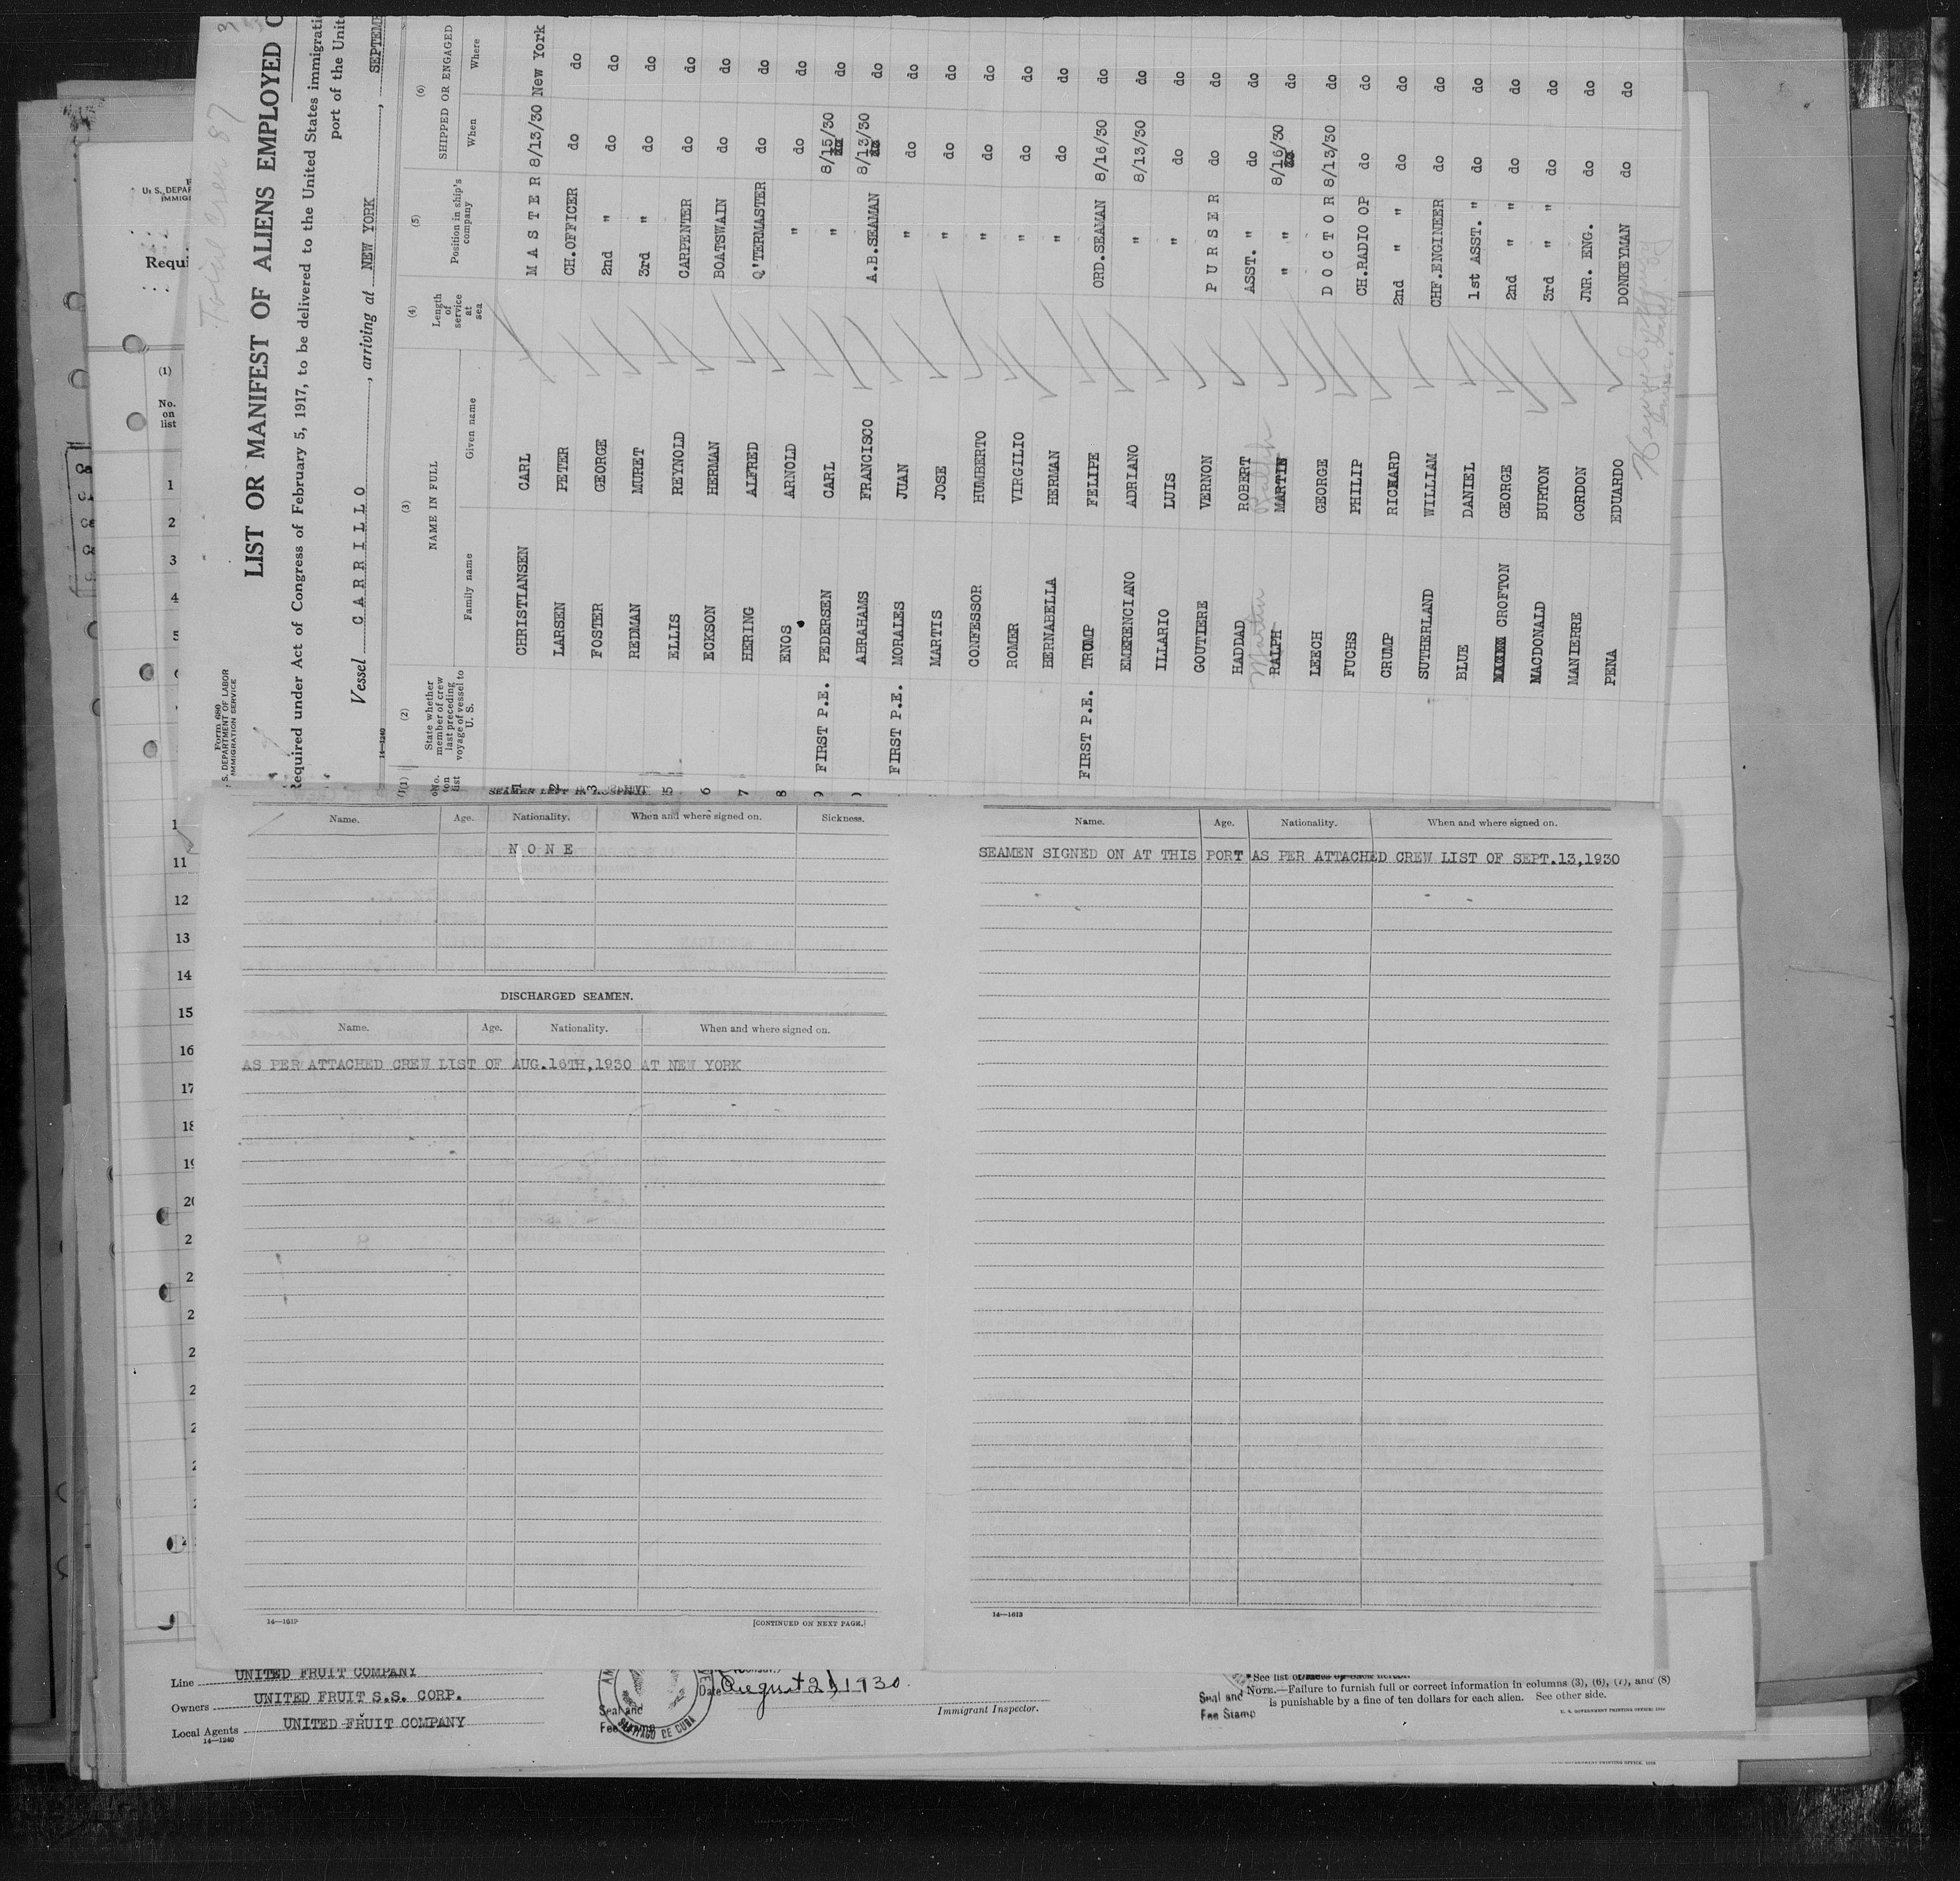 Total Crew 87
Form 680
S. DEPARTMENT OF LABOR
IMMIGRATION SERVICE
LIST OR MANIFEST OF ALIENS EMPLOYED
Required under Act of Congress of February 5, 1917, to be delivered to the United States immigrati
port of the Unit
Vessel CARRILLO, arriving at NEW YORK, SEPTEMB
14—1240
(1) (2) (3) (4) (5) (6)
No. on list
State whether member of crew last preceding voyage of vessel to U. S.
NAME IN FULL
Family name Given name
Length of service at sea
Position in ship's company
SHIPPED OR ENGAGED
When Where
1 CHRISTIANSEN CARL MASTER 8/13/30 New York
2 LARSEN PETER CH.OFFICER do do
3 FOSTER GEORGE 2nd " do do
REDMAN MURET 3rd " do do
5 ELLIS REYNOLD CARPENTER do do
6 ECKSON HERMAN BOATSWAIN do do
7 HERING ALFRED Q'TERMASTER do do
8 ENOS ARNOLD " do do
9 FIRST P.E. PEDERSEN CARL " 8/15/30 do
ABRAHAMS FRANCISCO A.B.SEAMAN 8/13/30 do
FIRST P.E. MORALES JUAN " do do
MARTIS JOSE " do do
CONFESSOR HUMBERTO " do do
ROMER VIRGILIO " do do
BERNABELLA HERMAN " do do
FIRST P.E. TRUMP FELIPE ORD.SEAMAN 8/16/30 do
EMERENCIANO ADRIANO " 8/13/30 do
ILLARIO LUIS " do do
GOUTIERE VERNON PURSER do do
HADDAD ROBERT ASST. " do do
Martin Ralph
RALPH MARTIN " " 8/16/30 do
LEECH GEORGE DOCTOR 8/13/30 do
FUCHS PHILIP CH.RADIO OP do do
CRUMP RICHARD 2nd " " do do
SUTHERLAND WILLIAM CHF.ENGINEER do do
BLUE DANIEL 1st ASST. " do do
CROFTON GEORGE 2nd " " do do
MACDONALD BURTON 3rd " " do do
MANIERRE GORDON JNR. ENG. do do
PENA EDUARDO DONKEYMAN do do
U. S. DEPAR
IMMIG
Requi
(1)
No. on list
1
2
3
4
5
6
11
12
13
14
15
16
17
18
19
20
Name. Age. Nationality. When and where signed on. Sickness.
NONE
DISCHARGED SEAMEN.
Name. Age. Nationality. When and where signed on.
AS PER ATTACHED CREW LIST OF AUG.16TH,1930 AT NEW YORK
14—1613 [CONTINUED ON NEXT PAGE.]
Name. Age. Nationality. When and where signed on.
SEAMEN SIGNED ON AT THIS PORT AS PER ATTACHED CREW LIST OF SEPT.13,1930
14—1613
Line UNITED FRUIT COMPANY
Owners UNITED FRUIT S.S. CORP.
Local Agents UNITED FRUIT COMPANY
14—1240
Seal and
Fee Stamp
SANTIAGO DE CUBA
Date August 21 1930.
Immigrant Inspector.
Seal and
Fee Stamp
*See list of races on back hereof.
NOTE.—Failure to furnish full or correct information in columns (3), (6), (7), and (8)
is punishable by a fine of ten dollars for each alien. See other side.
U. S. GOVERNMENT PRINTING OFFICE: 1930